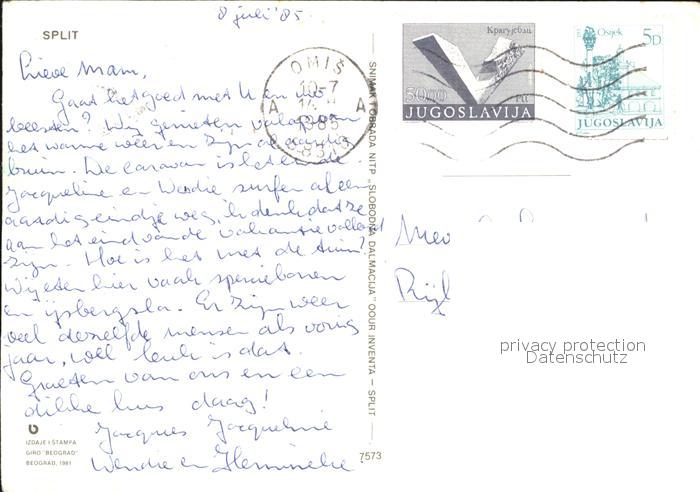 8 juli '85.
SPLIT
Lieve Mam,
Gaat het goed met U en Uw
beesten? Wij genieten vakantie
het warme weer en zijn al aardig
bruin. De caravan is
Jacqueline en Wendie surfen al een
aardig eindje weg, ik denk dat ze
aan het eind van de vakantie volleerd
zijn. Hoe is het met de tuin?
Wij eten hier vaak sperciebonen
en ijsbergsla. Er zijn weer
veel dezelfde mensen als vorig
jaar, wel leuk is dat.
Groeten van ons en een
dikke kus daag!
Jacques Jacqueline
Wendie en Hennineke
IZDAJE I ŠTAMPA
GIRO "BEOGRAD"
BEOGRAD, 1981
7573
SNIMAK I OBRADA NITP „SLOBODNA DALMACIJA" OOUR INVENTA — SPLIT —
OMIŠ
1985
A A
Крагујевац
50,00
JUGOSLAVIJA
Osijek
5D
JUGOSLAVIJA
Mev
Rijl
privacy protection
Datenschutz